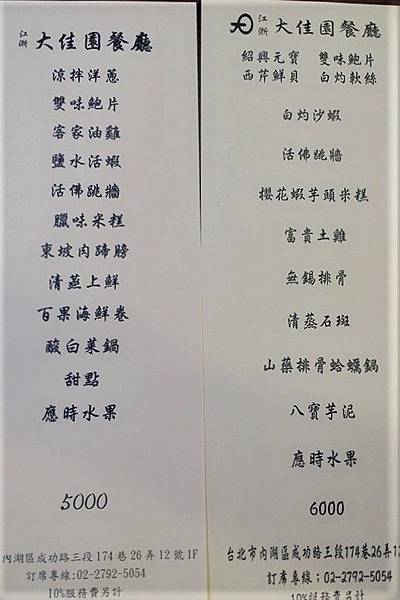 江浙 大佳園餐廳
涼拌洋蔥
雙味鮑片
客家油雞
鹽水活蝦
活佛跳牆
臘味米糕
東坡肉蹄膀
清蒸上鮮
百果海鮮卷
酸白菜鍋
甜點
應時水果
5000
內湖區成功路三段174巷26弄12號1F
訂席專線:02-2792-5054
10%服務費另計
江浙 大佳園餐廳
紹興元寶 雙味鮑片
西芹鮮貝 白灼軟絲
白灼沙蝦
活佛跳牆
櫻花蝦芋頭米糕
富貴土雞
無錫排骨
清蒸石斑
山藥排骨蛤蠣鍋
八寶芋泥
應時水果
6000
台北市內湖區成功路三段174巷26弄12
訂席專線：02-2792-5054
10%服務費另計